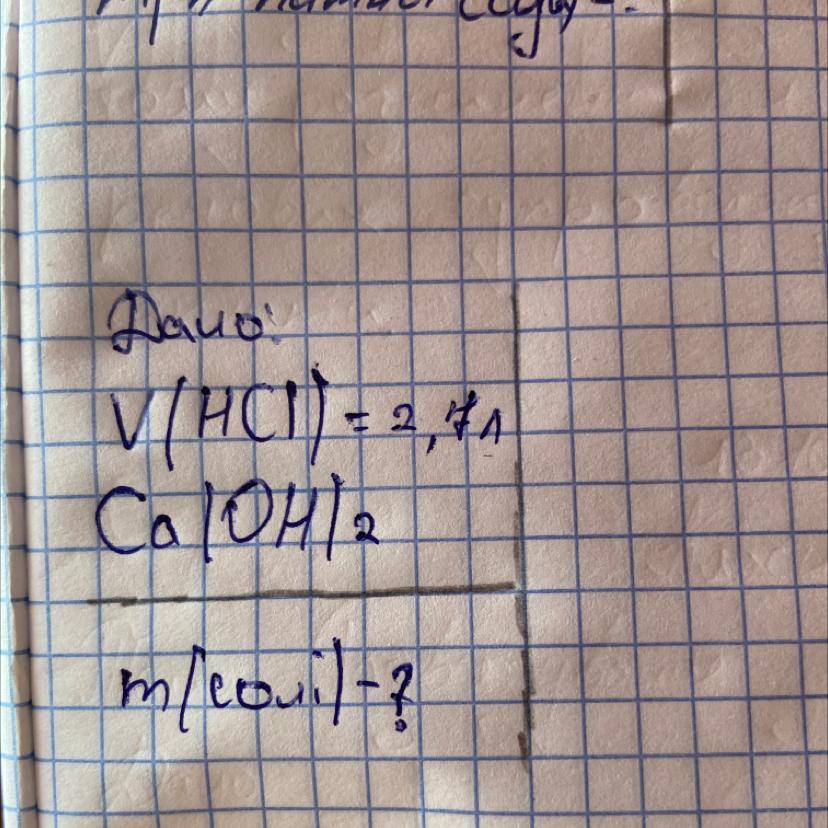 Дано:
V(HCl) = 2,7л
Ca(OH)2
m(солі) - ?